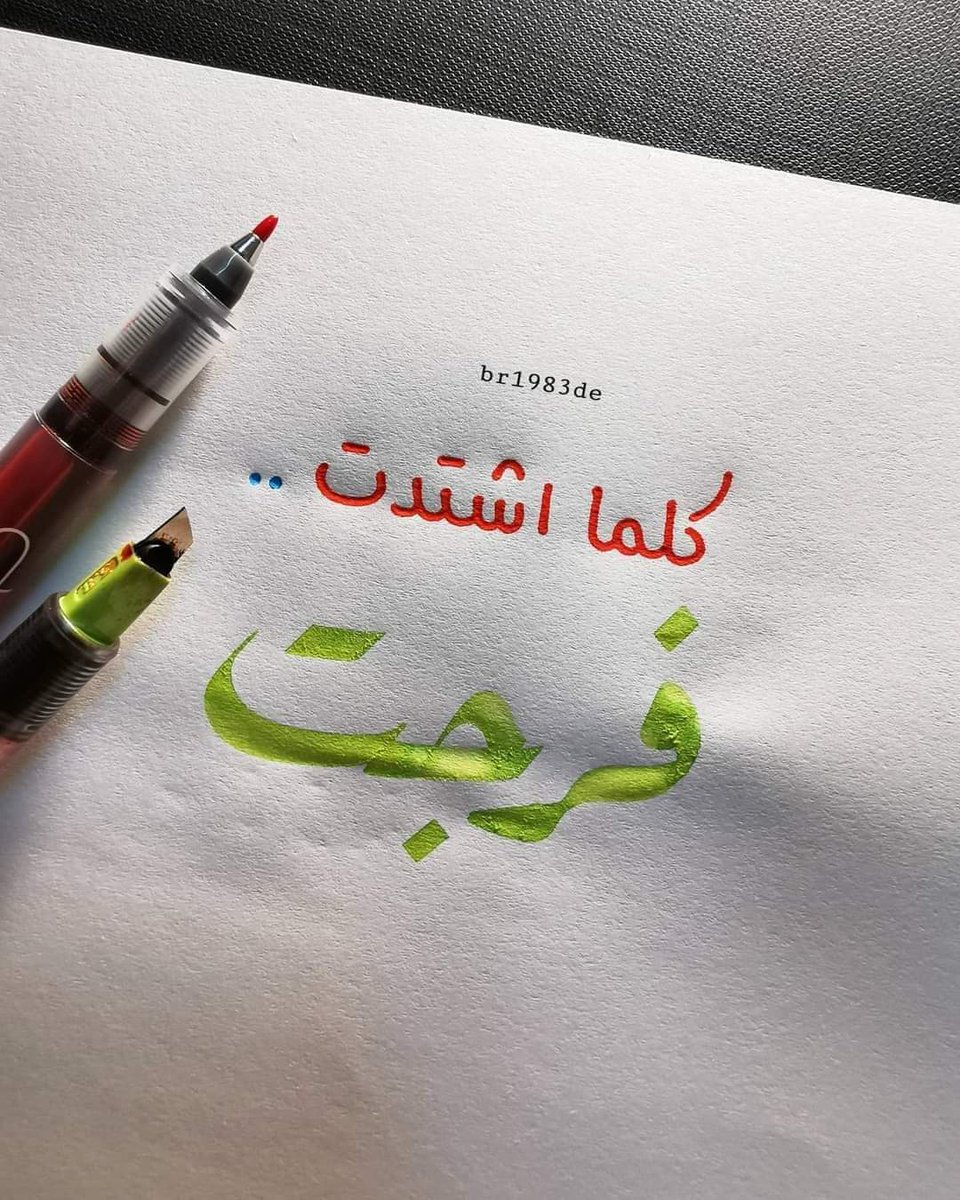 br1983de
كلما اشتدت ..
فرجت